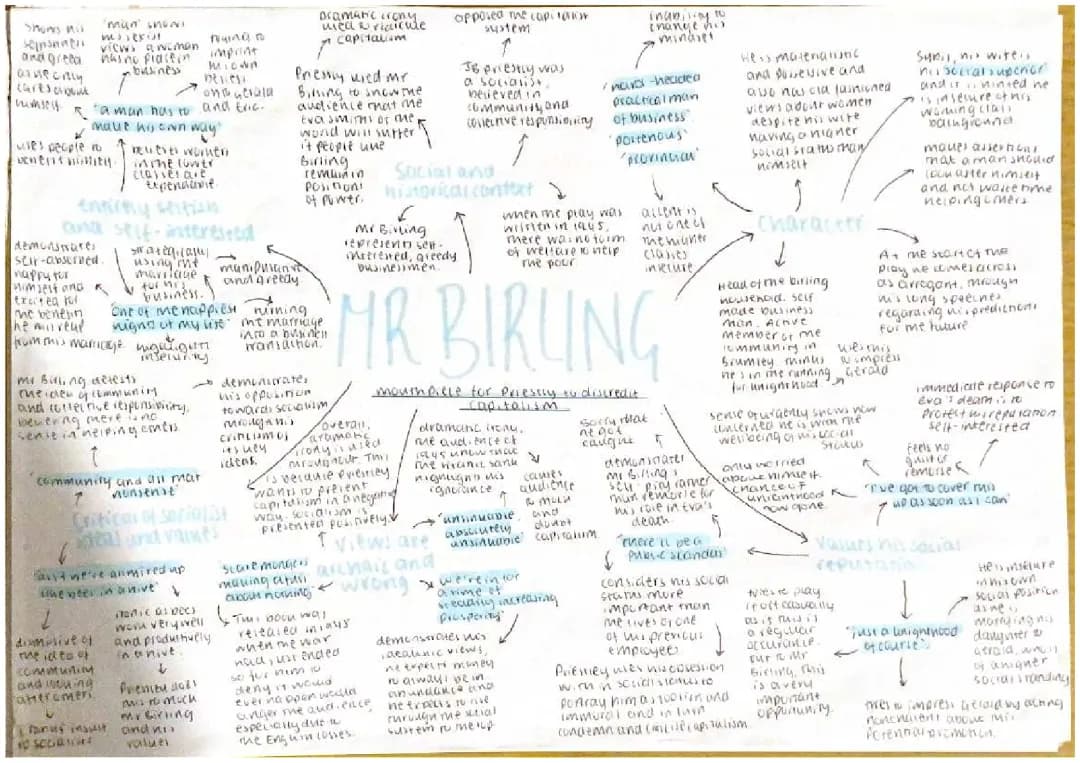 MR BIRLING
mouthpiece for Priestly to discredit
capitalism
Entirely selfish
and self-interested
'a man has to
make his own way'
shows his
selfishness
and greed
as he only
cares about
himself.
'man' shows
his sexist
views a woman
has no place in
business
trying to
imprint
his own
beliefs
on Gerald
and Eric.
uses people to
benefit himself.
believes women
in the lower
classes are
expendable.
'One of the happiest
nights of my life'
demonstrates
self-absorbed.
happy for
himself and
excited for
the benefits
he will reap
from this marriage.
strategically
using the
marriage
for his
business.
manipulative
and greedy.
turning
the marriage
into a business
transaction.
highlights
insecurity
Social and
historical context
Priestly used Mr
Birling to show the
audience that the
Eva smiths of the
world will suffer
if people like
Birling
remain in
positions
of power.
dramatic irony
used to ridicule
capitalism
opposed the capitalist
system
JB priestly was
a socialist,
believed in
community and
collective responsibility
Mr Birling
represents self-
interested, greedy
businessmen.
when the play was
written in 1945,
there was no form
of welfare to help
the poor
Character
'hard-headed
practical man
of business'
'portenous'
'provincial'
inability to
change his
mindset
accent is
not one of
the higher
classes
insecure
He is materialistic
and possessive and
also has old fashioned
views about women
despite his wife
having a higher
social status than
himself
Sybil, his wife is
his 'social superior'
and it is hinted he
is insecure of his
working class
background
makes assertions
that a man should
look after himself
and not waste time
helping others
At the start of the
play he comes across
as arrogant, through
his long speeches
regarding his predictions
for the future
Head of the birling
household. self
made business
man. Active
member of the
community in
Brumley. thinks
he's in the running
for knighthood
uses this
to impress
Gerald
Critical of socialist
ideas and values
'community and all that
nonsense'
Mr Birling detests
the idea of community
and collective responsibility,
believing there is no
sense in helping others
demonstrates
his opposition
towards socialism
through his
criticism of
its key
ideas.
'as if we're all mixed up
like bees in a hive'
dismissive of
the idea of
community
and looking
after others.
ironic as bees
work very well
and productively
in a hive.
Priestly does
this to mock
Mr Birling
and his
values
Views are
archaic and
wrong
overall,
dramatic
irony is used
throughout. This
is because Priestley
wants to present
capitalism in a negative
way, socialism is
presented positively.
dramatic irony,
the audience of
1945 know that
the titanic sank
highlights his
ignorance
'unsinkable,
absolutely
unsinkable'
causes
audience
to mock
and
doubt
capitalism.
'scaremongers
making a fuss
about nothing'
This book was
released in 1945
when the war
had just ended
so for him to
deny it would
ever happen would
anger the audience,
especially due to
the English losses.
'we're in for
a time of
steadily increasing
prosperity'
demonstrates his
idealistic views,
he expects money
to always be in
abundance and
he expects to rise
through the social
system to the top
Values his social
reputation
'I've got to cover this
up as soon as I can'
sense of urgency shows how
concerned he is with the
wellbeing of his social
status
feels no
guilt or
remorse
immediate response to
eva's death is to
protect his reputation
self-interested
only worried
about himself.
chance of
knighthood
now gone.
'there'll be a
public scandal'
sorry that
he got
caught
demonstrates
Mr Birling's
self pity rather
than remorse for
his role in Eva's
death.
considers his social
status more
important than
the lives of one
of his previous
employees
Priestley uses his obsession
with in social status to
portray him as foolish and
immoral and in turn
condemn and criticise capitalism.
'just a knighthood
of course'
tries to play
it off casually
as if this is
a regular
occurance.
but to Mr
Birling, this
is a very
important
opportunity.
He is insecure
in his own
social position
as he is
marrying his
daughter to
Gerald, who is
of a higher
social standing
tries to impress Gerald by acting
nonchalent about his
potential promotion.